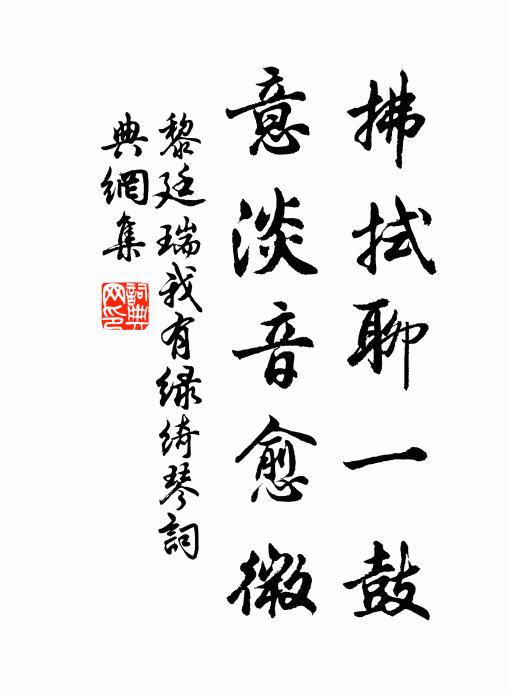 拂拭聊一鼓
意淡音愈微
黎廷瑞我有緑綺琴詞
典網集
詞典
网印